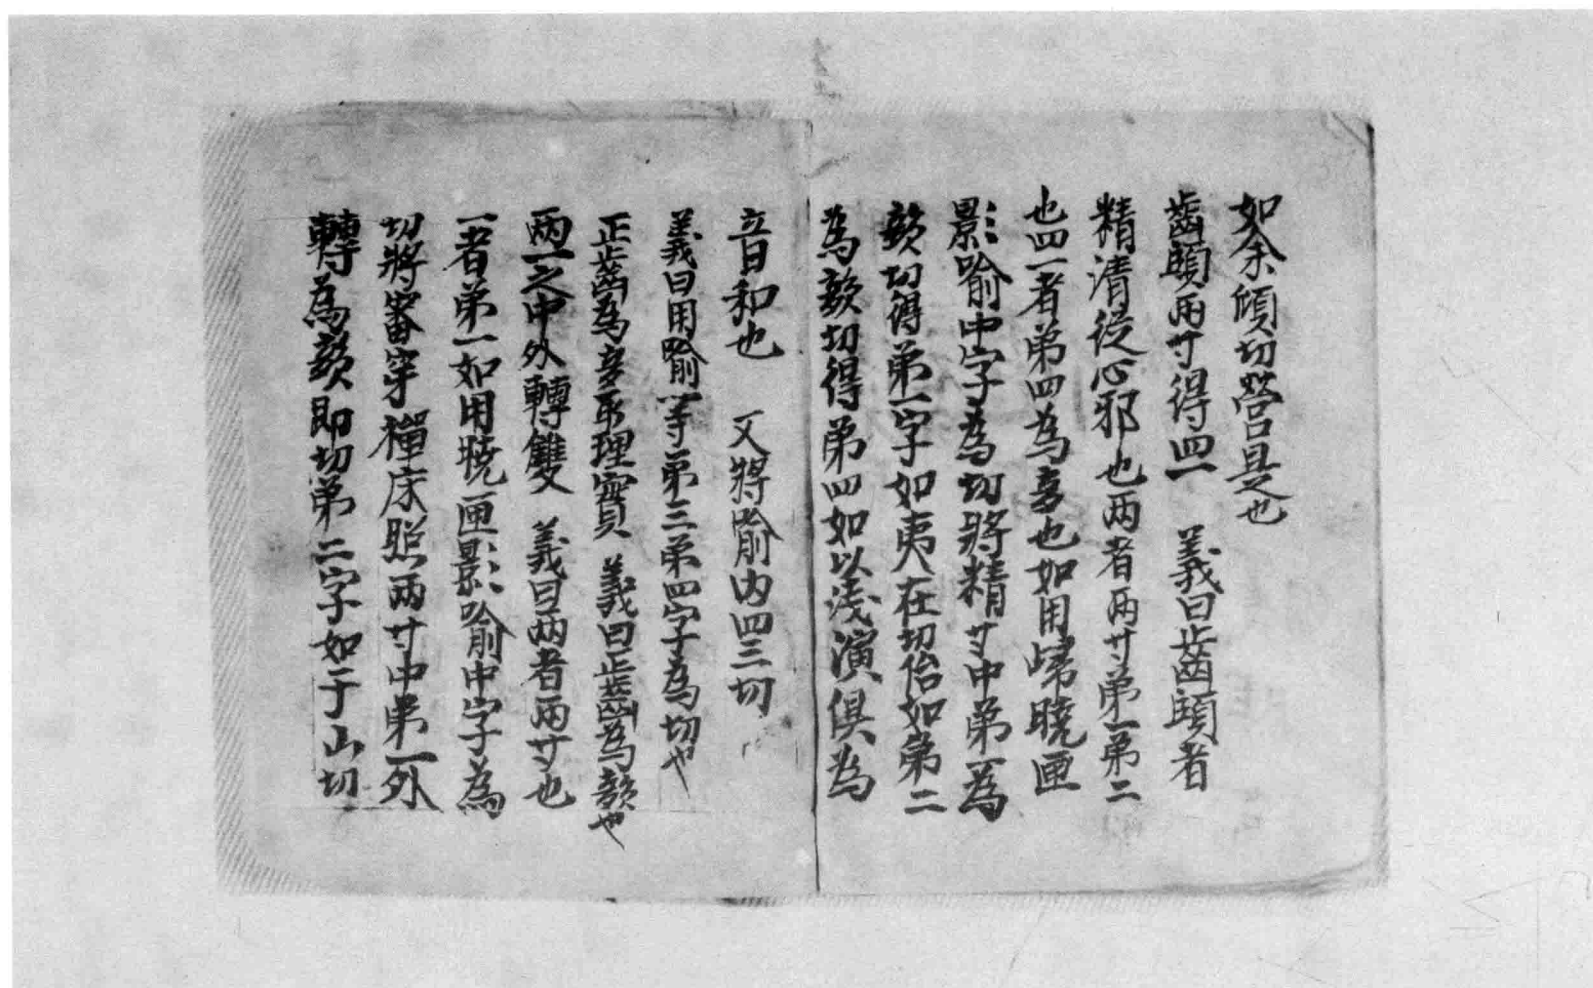 如余傾切營是也
齒頭兩寸得四一　義曰齒頭者
精清從心邪也两者两寸第一第二
也四一者第四為音也如用歸曉匣
影喻中字為切將精寸中第一為
韻切得第一字如夷在切佁如第二
為韻切得第四如以淺演俱為
音和也　又將喻内四三切
義曰用喻等第三第四字為切也
正齒為音取理實　義曰正齒為韻也
两一之中外轉雙　義曰两者两寸也
一者第一如用曉匣影喻中字為
切將審穿禪床照两寸中第一外
轉為韻即切第二字如于山切